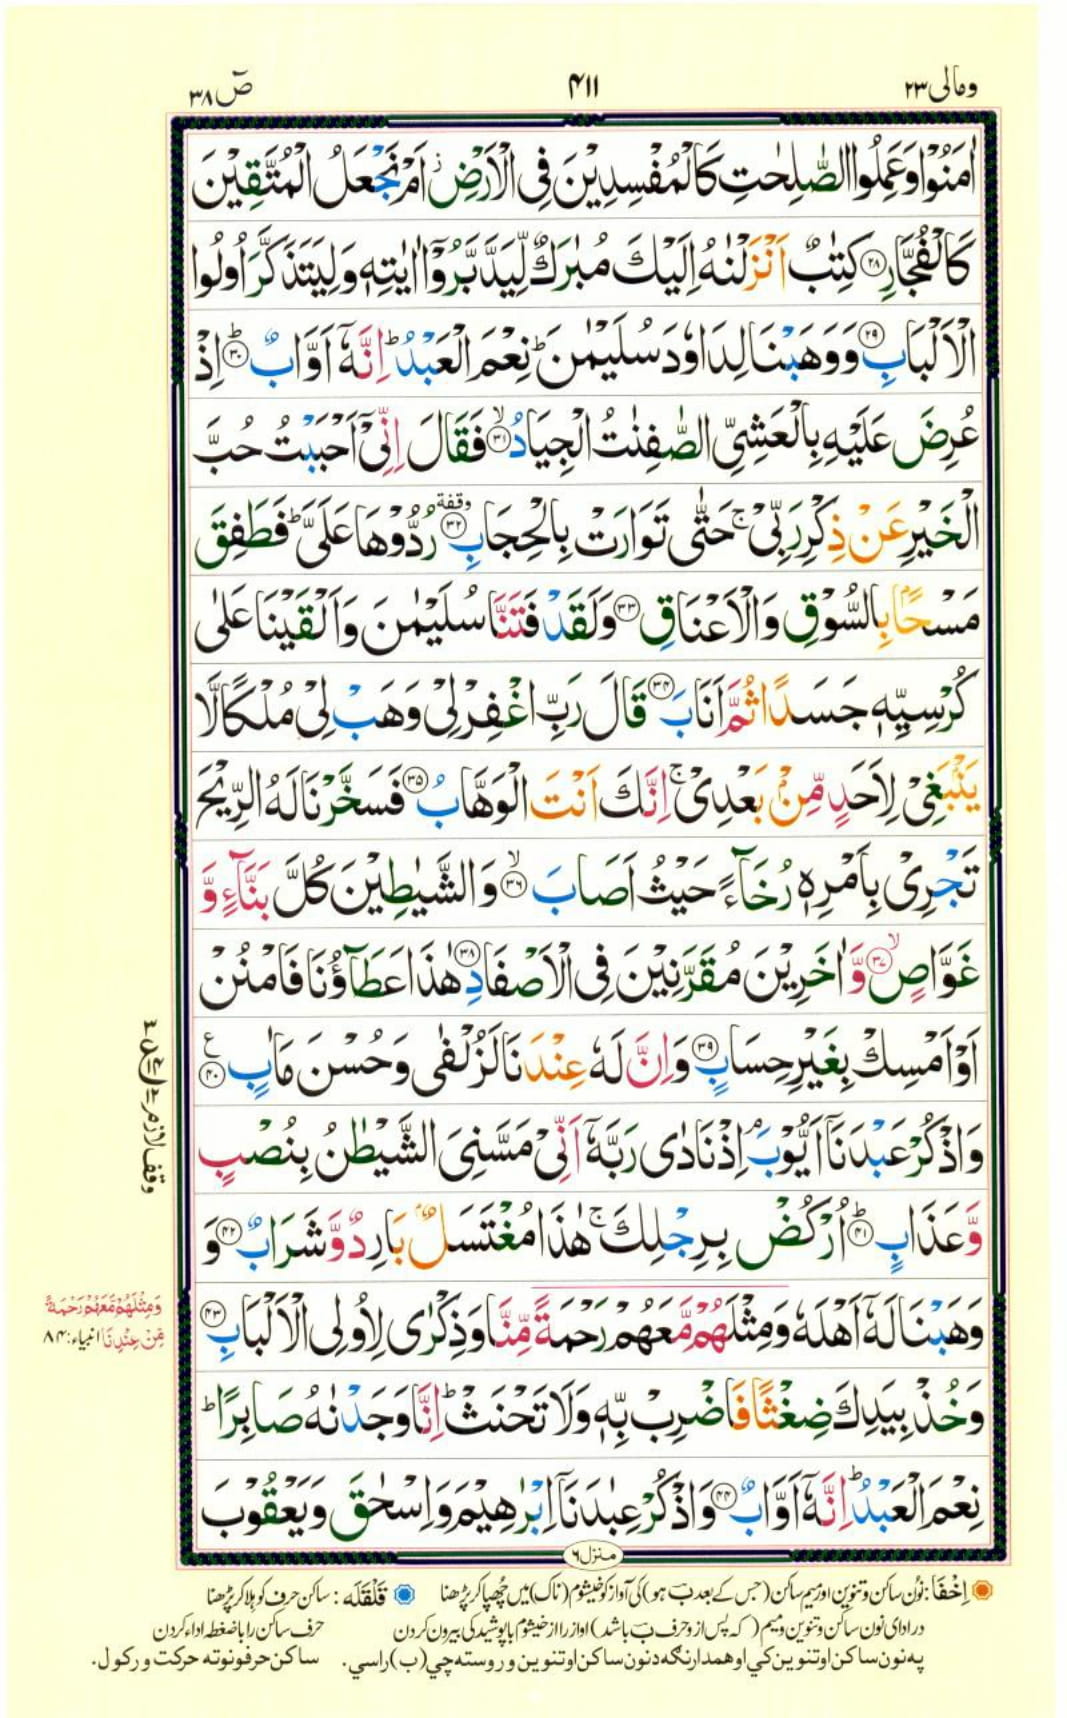 ومالی ۲۳
۴۱۱
صٓ ۳۸
اٰمَنُوْا وَعَمِلُوا الصّٰلِحٰتِ كَالْمُفْسِدِيْنَ فِى الْاَرْضِ ز اَمْ نَجْعَلُ الْمُتَّقِيْنَ
كَالْفُجَّارِ ۲۸ كِتٰبٌ اَنْزَلْنٰهُ اِلَيْكَ مُبٰرَكٌ لِّيَدَّبَّرُوْٓا اٰيٰتِهٖ وَلِيَتَذَكَّرَ اُولُوا
الْاَلْبَابِ ۲۹ وَوَهَبْنَا لِدَاوٗدَ سُلَيْمٰنَ ط نِعْمَ الْعَبْدُ ط اِنَّهٗٓ اَوَّابٌ ط ۳۰ اِذْ
عُرِضَ عَلَيْهِ بِالْعَشِىِّ الصّٰفِنٰتُ الْجِيَادُ لا ۳۱ فَقَالَ اِنِّىْٓ اَحْبَبْتُ حُبَّ
الْخَيْرِ عَنْ ذِكْرِ رَبِّىْ ج حَتّٰى تَوَارَتْ بِالْحِجَابِ وقفة ۳۲ رُدُّوْهَا عَلَىَّ ط فَطَفِقَ
مَسْحًۢا بِالسُّوْقِ وَالْاَعْنَاقِ ۳۳ وَلَقَدْ فَتَنَّا سُلَيْمٰنَ وَاَلْقَيْنَا عَلٰى
كُرْسِيِّهٖ جَسَدًا ثُمَّ اَنَابَ ۳۴ قَالَ رَبِّ اغْفِرْ لِىْ وَهَبْ لِىْ مُلْكًا لَّا
يَنْۢبَغِىْ لِاَحَدٍ مِّنْۢ بَعْدِىْ ج اِنَّكَ اَنْتَ الْوَهَّابُ ۳۵ فَسَخَّرْنَا لَهُ الرِّيْحَ
تَجْرِىْ بِاَمْرِهٖ رُخَآءً حَيْثُ اَصَابَ لا ۳۶ وَالشَّيٰطِيْنَ كُلَّ بَنَّآءٍ وَّ
غَوَّاصٍ لا ۳۷ وَّاٰخَرِيْنَ مُقَرَّنِيْنَ فِى الْاَصْفَادِ ۳۸ هٰذَا عَطَآؤُنَا فَامْنُنْ
اَوْ اَمْسِكْ بِغَيْرِ حِسَابٍ ۳۹ وَاِنَّ لَهٗ عِنْدَنَا لَزُلْفٰى وَحُسْنَ مَاٰبٍ ع ۴۰
وَاذْكُرْ عَبْدَنَآ اَيُّوْبَ م اِذْ نَادٰى رَبَّهٗٓ اَنِّىْ مَسَّنِىَ الشَّيْطٰنُ بِنُصْبٍ
وَّعَذَابٍ ط ۴۱ اُرْكُضْ بِرِجْلِكَ ج هٰذَا مُغْتَسَلٌۢ بَارِدٌ وَّشَرَابٌ ۴۲ وَ
وَهَبْنَا لَهٗٓ اَهْلَهٗ وَمِثْلَهُمْ مَّعَهُمْ رَحْمَةً مِّنَّا وَذِكْرٰى لِاُولِى الْاَلْبَابِ ۴۳
وَخُذْ بِيَدِكَ ضِغْثًا فَاضْرِبْ بِّهٖ وَلَا تَحْنَثْ ط اِنَّا وَجَدْنٰهُ صَابِرًا ط
نِعْمَ الْعَبْدُ ط اِنَّهٗٓ اَوَّابٌ ۴۴ وَاذْكُرْ عِبٰدَنَآ اِبْرٰهِيْمَ وَاِسْحٰقَ وَيَعْقُوْبَ
وقف لازم
وَمِثْلَهُمْ مَّعَهُمْ رَحْمَةً
مِّنْ عِنْدِنَا انبیاء: ۸۴
منزل ۶
اِخْفَا: نون ساکن و تنوین اور میم ساکن (جس کے بعد ب ہو) کی آواز کو خیشوم (ناک) میں چھپا کر پڑھنا
قَلْقَلَه: ساکن حرف کو ہلا کر پڑھنا
در ادای نون ساکن و تنوین و میم (که پس از و حرف ب باشد) اواز را از خیشوم با پوشیدگی بیرون کردن
حرف ساکن را با ضغطه ادا کردن
په نون ساکن او تنوین کي او همدارنګه د نون ساکن او تنوین و روسته چي (ب) راسي.
ساکن حرفونو ته حرکت ورکول.